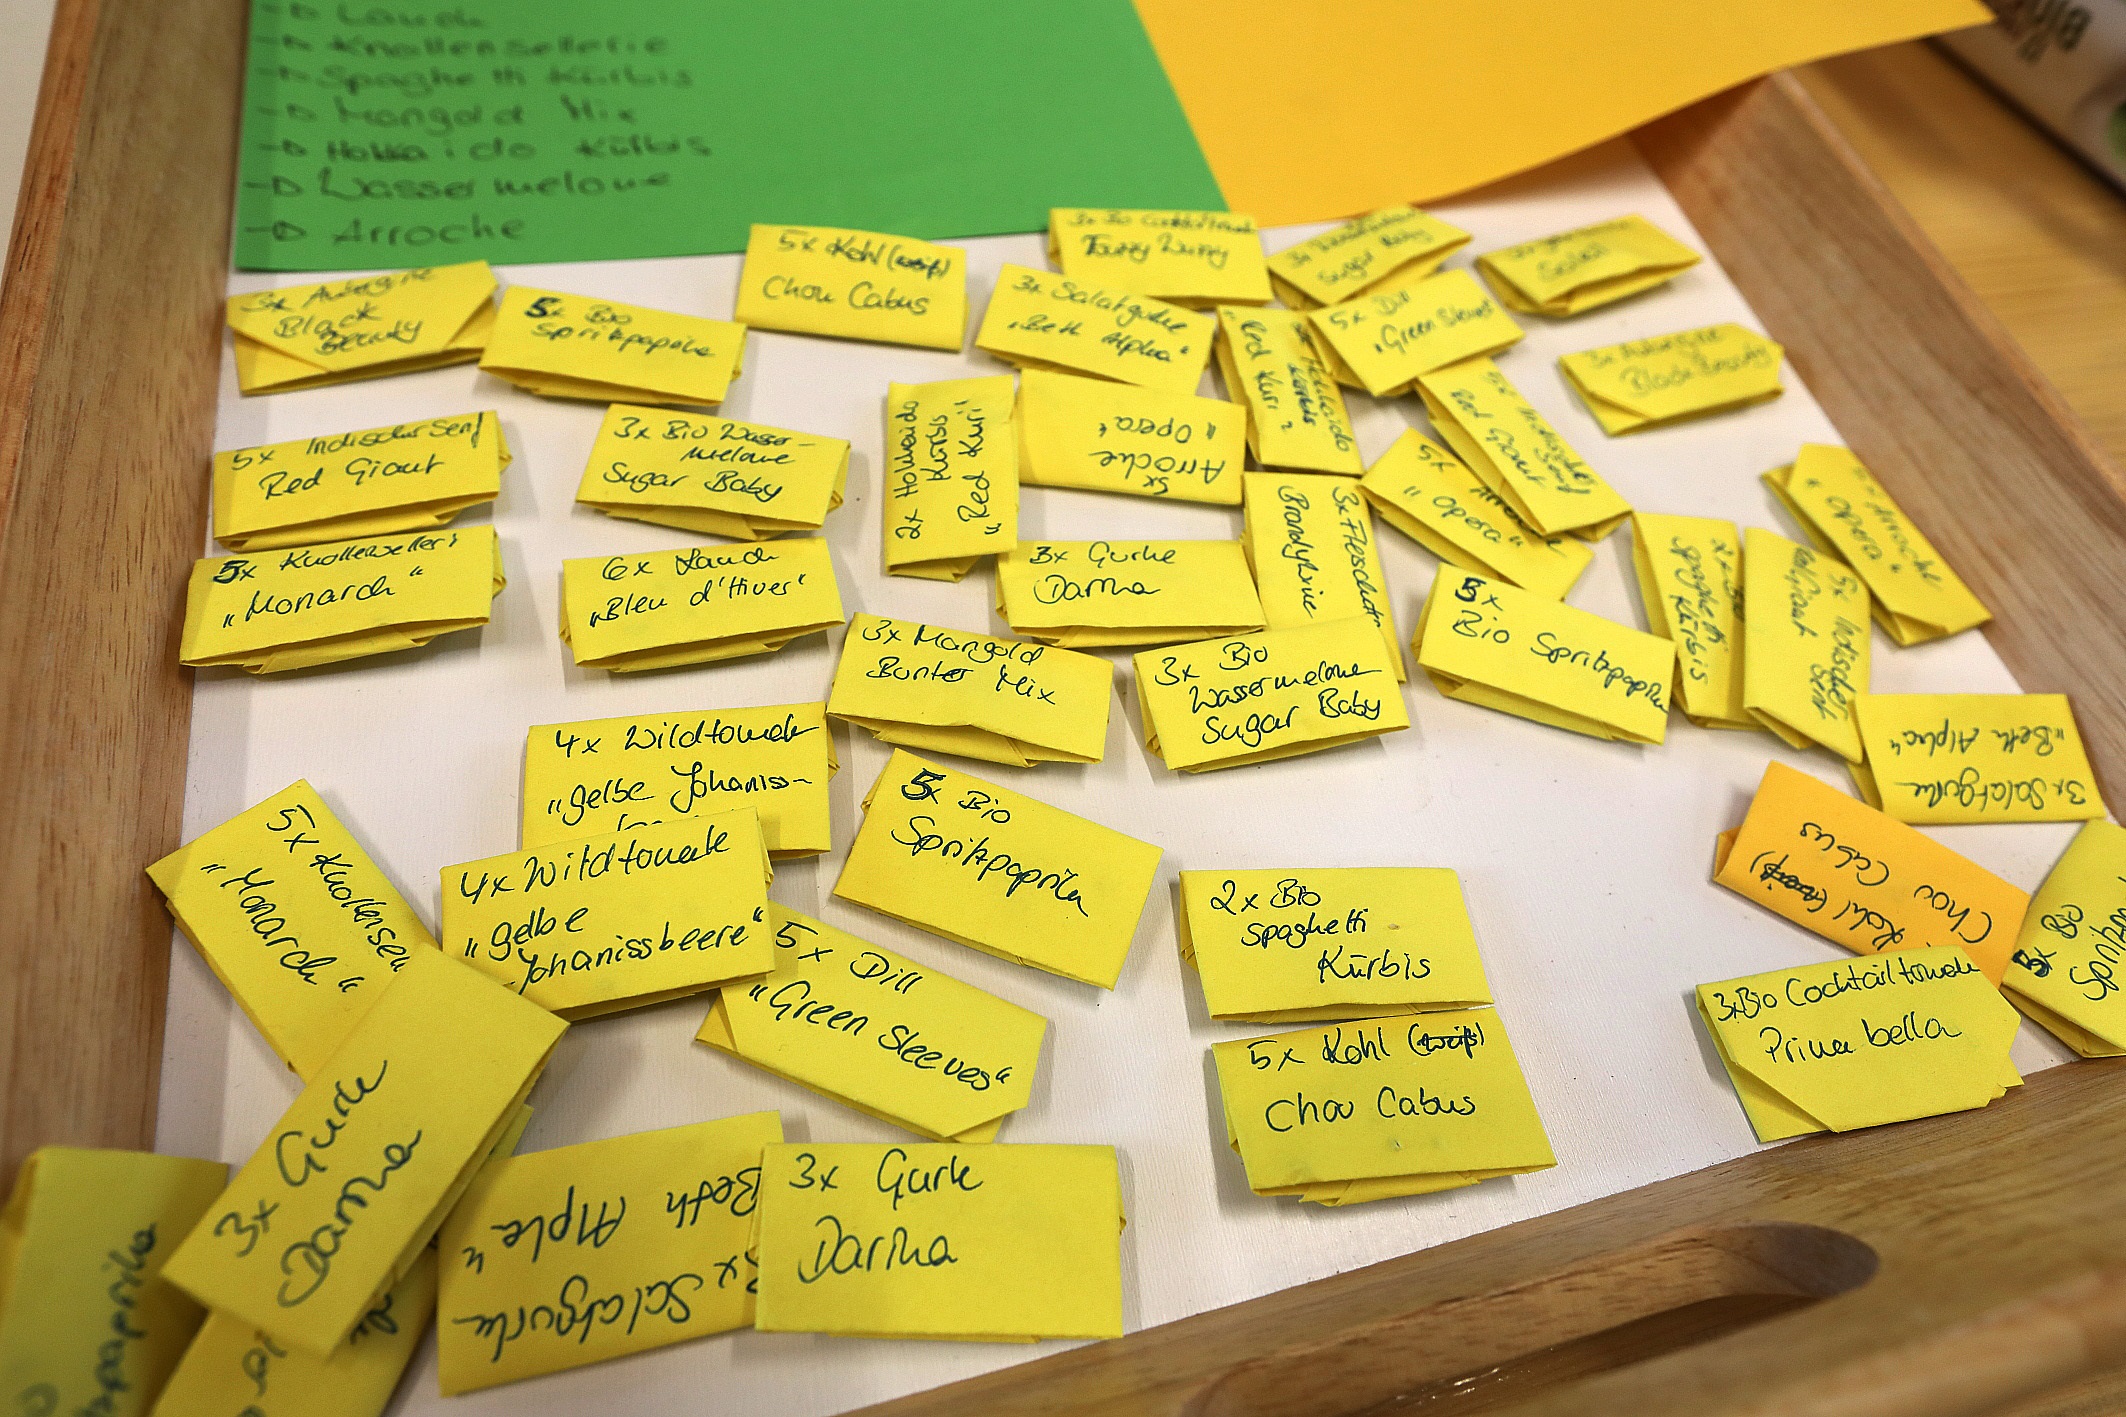 -> Lauch
-> Knollensellerie
-> Spaghetti Kürbis
-> Mangold Mix
-> Hokkaido Kürbis
-> Wassermelone
-> Arroche
3x Aubergine
Black
Beauty
5x Bio
Spritzpaprika
5x Kohl (weiß)
Chou Cabus
3x Bio
3x Salatgurke
„Beth Alpha“
Sugar Baby
5x Dill
„Green Sleeves“
3x Aubergine
Black Beauty
5x Indischer Senf
Red Giant
3x Bio Wasser-
melone
Sugar Baby
2x Hokkaido
Kürbis
„Red Kuri“
5x
Arroche
„Opera“
Hokkaido
Kürbis
„Red Kuri“
5x Indischer Senf
Red Giant
5x Arroche
„Opera“
Arroche
„Opera“
5x Knollensellerie
„Monarch“
6x Lauch
„Bleu d'Hiver“
3x Gurke
Darina
3x Fleischtom
Brandywine
5x
Bio Spritzpaprika
2x Bio
Spaghetti
Kürbis
5x Indischer
Senf
Red Giant
3x Mangold
Bunter Mix
3x Bio
Wassermelone
Sugar Baby
3x Salatgurke
„Beth Alpha“
4x Wildtomate
„gelbe Johaniss-
5x Bio
Spritzpaprika
5x Knollensell
„Monarch“
4x Wildtomate
„gelbe
Johanissbeere“
5x Dill
„Green Sleeves“
2x Bio
Spaghetti
Kürbis
Kohl (weiß)
Chou Cabus
5x Bio
Spritz
3x Bio Cocktailtomate
Prima bella
5x Kohl (weiß)
Chou Cabus
3x Gurke
Darina
3x Salatgurke
„Beth Alpha“
3x Gurke
Darina
paprika